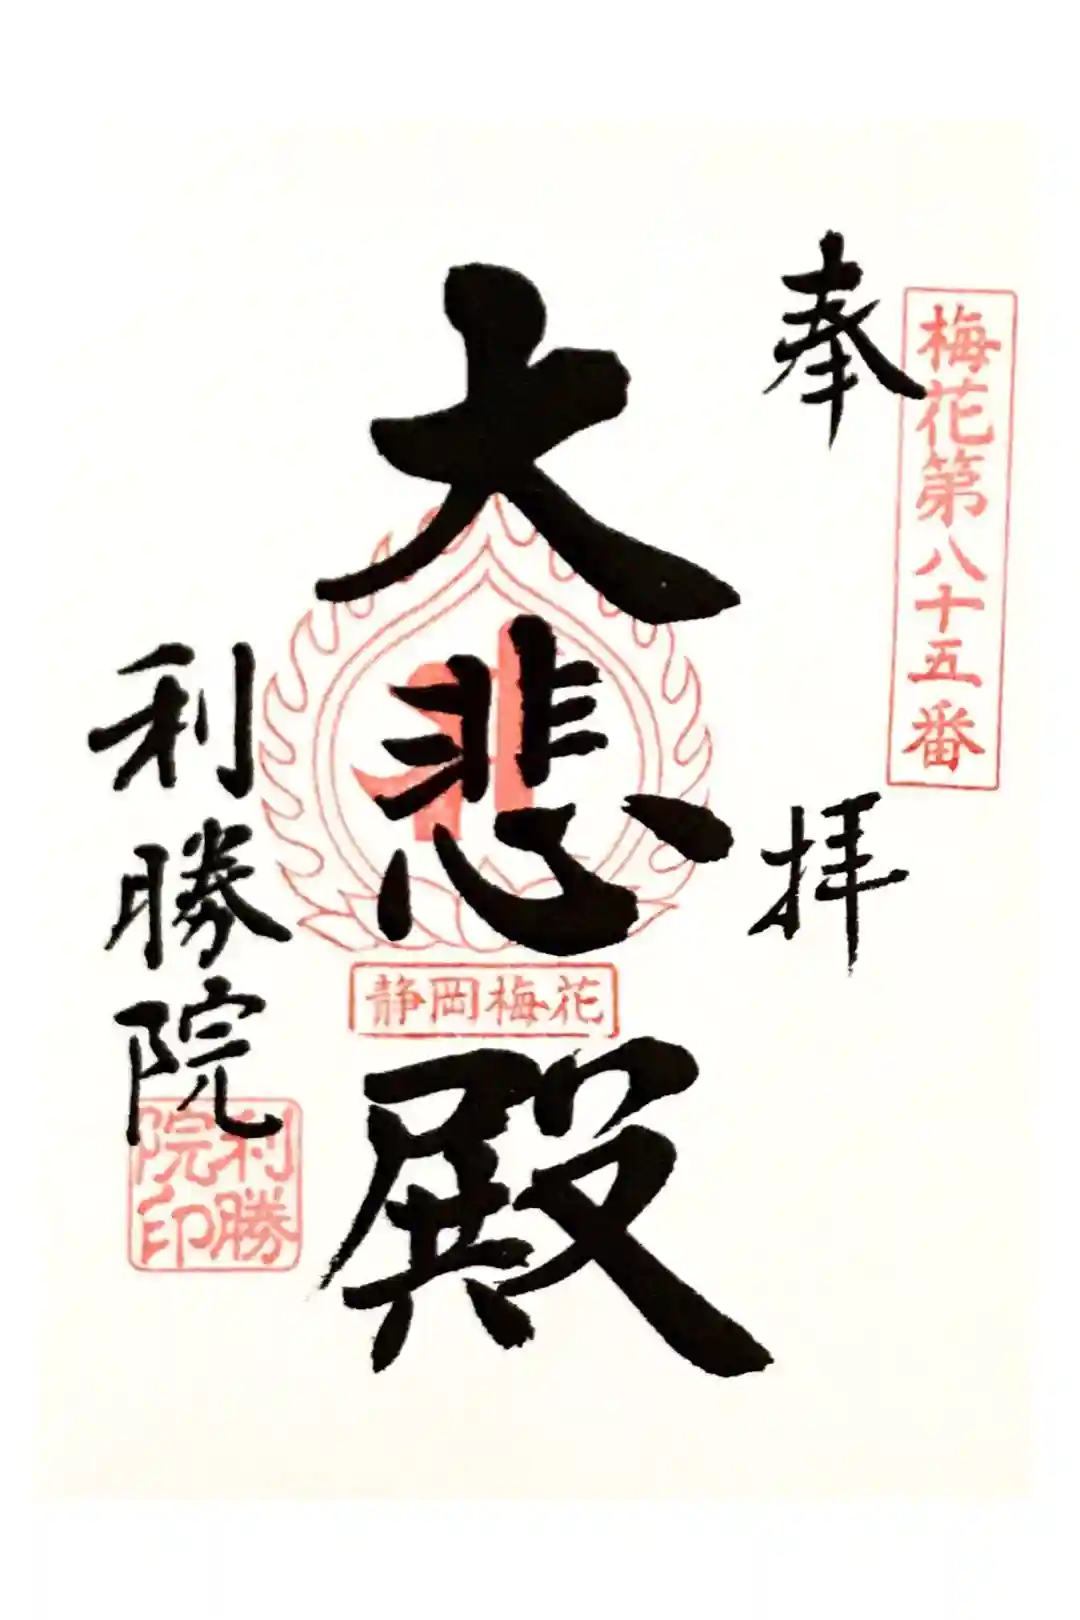 梅花第八十五番
奉拝
大悲殿
静岡梅花
利勝院
利勝院印